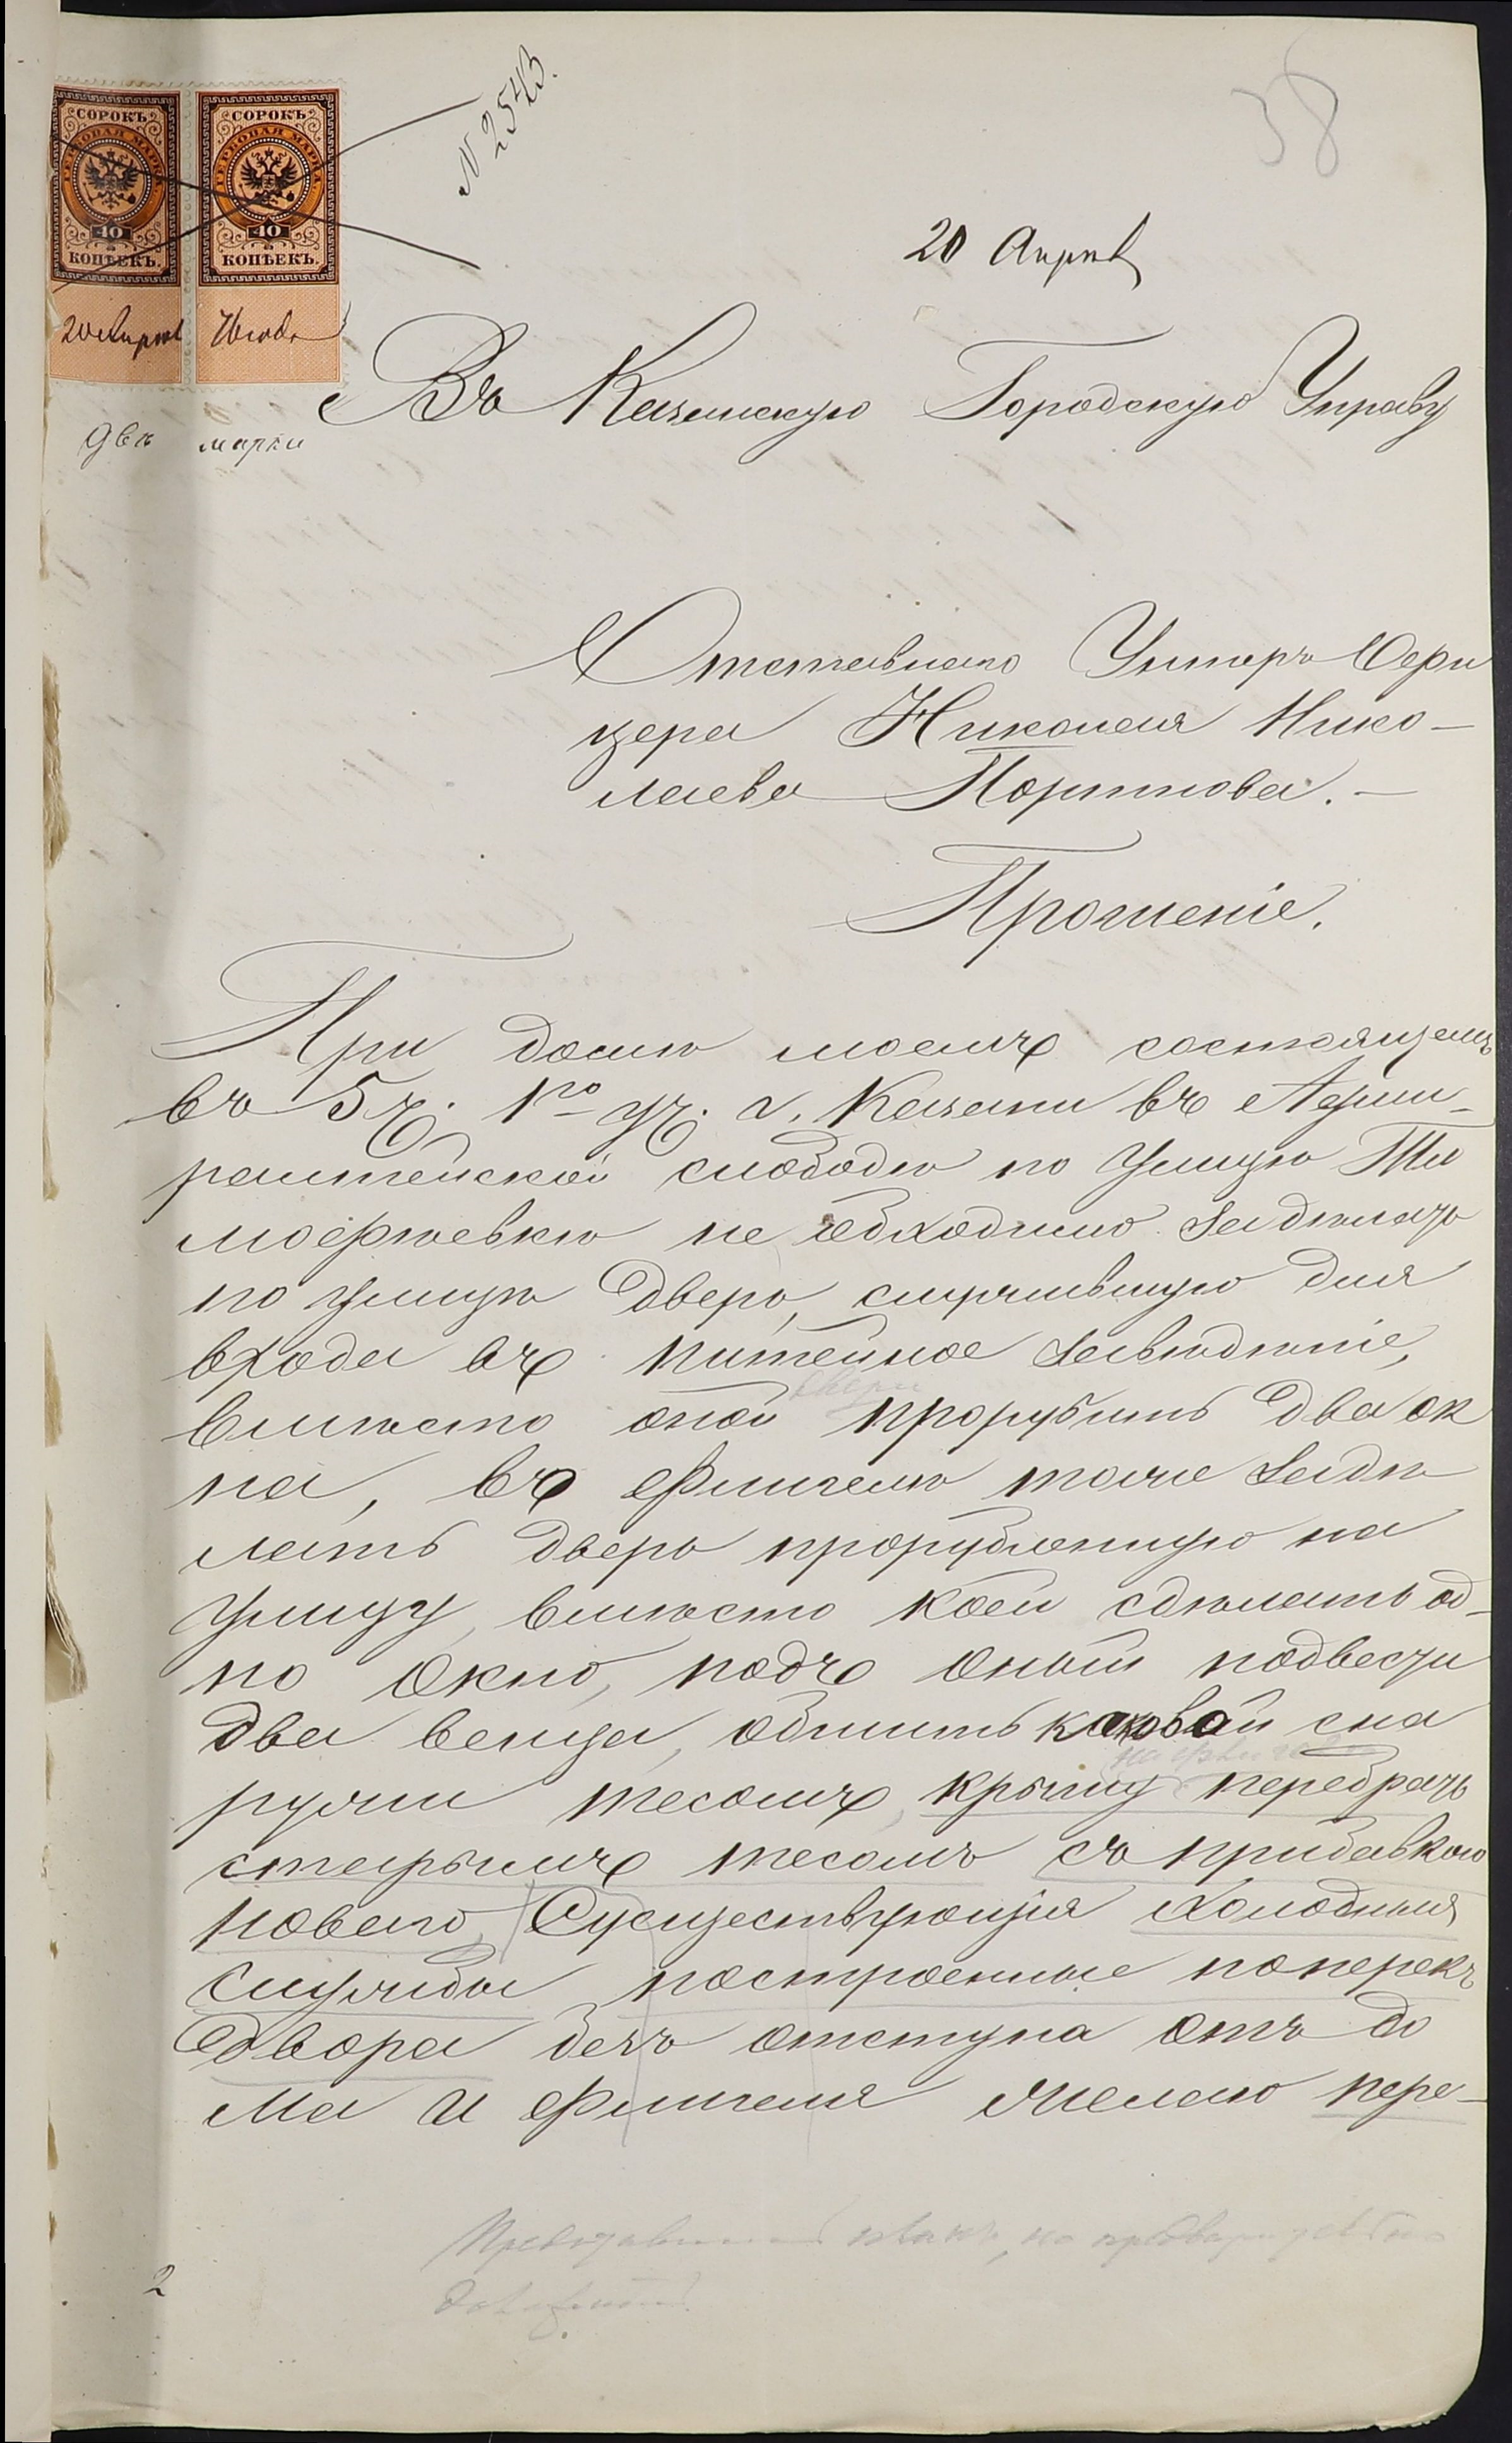 № 2543.
38
СОРОКЪ СОРОКЪ
ГЕРБОВАЯ МАРКА ГЕРБОВАЯ МАРКА
40 40
КОПѢЕКЪ. КОПѢЕКЪ.
20 Апрѣл 76 года
двѣ марки
20 Апрѣл
Въ Казанскую Городскую Управу
Отставнаго Унтеръ Офи
цера Николая Нико-
лаева Портнова.-
Прошеніе.
При домѣ моемъ состоящемъ
въ 5 ч. 1го уч. г. Казани въ Адми-
ралтейской слободѣ по улицѣ Ти
мофѣевкѣ не обходимо задѣлать
по улицѣ дверь, служившую для
входа въ питейное заведѣніе,
вмѣсто оной двери прорубить два ок
на, въ флигелѣ тоже задѣ
лать дверь прорубленную на
улицу, вмѣсто коей сдѣлать од-
но окно, подъ оный подвести
два венца, обшить каковой сна
ружи тесомъ, крышу перебрать
старымъ тесомъ съ прибавкою
новаго, Существующія холодныя
службы построенные поперекъ
двора безъ отступа отъ до
ма и флигеля желаю пере-
планъ, но
2